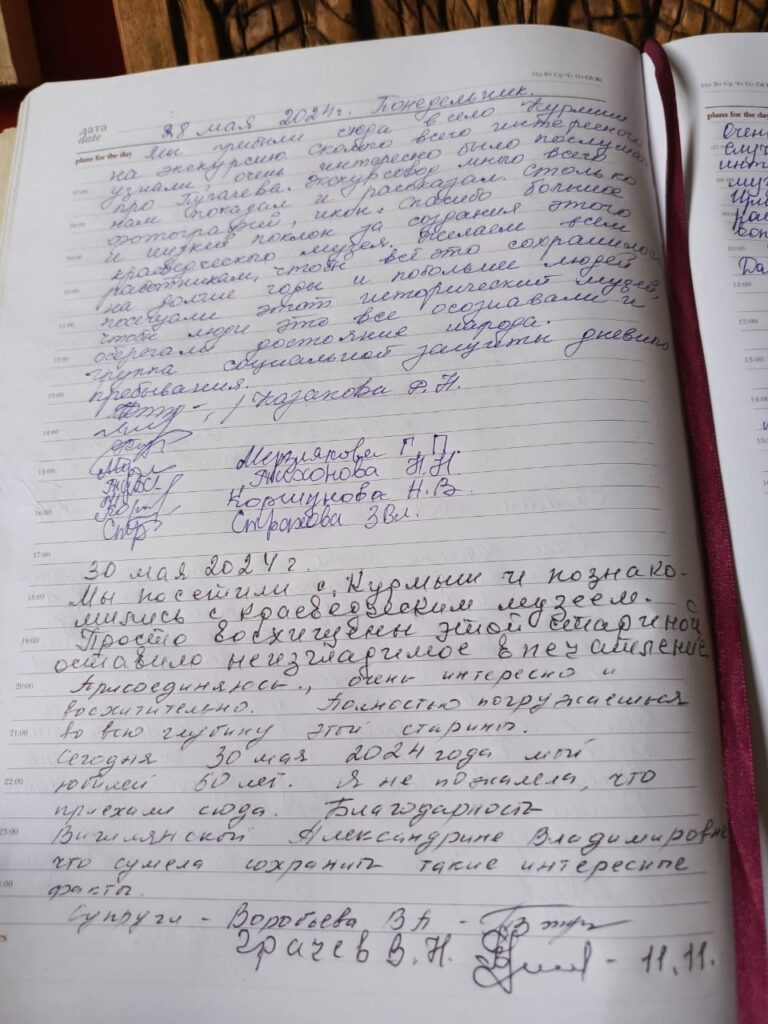 Пн Вт Ср Чт Пт Сб Вс
дата
date
28 мая 2024г. Понедельник.
plans for the day
Мы прибыли сюда в село Курмыш
на экскурсию сколько всего интересного
узнали, очень интересно было послушать
про Пугачева. Экскурсовод много всего
нам показал и рассказал. Столько
фотографий, икон. Спасибо большое
и низкий поклон за создания этого
краеведческого музея. Желаем всем
работникам, чтобы всё это сохранилось
на долгие годы и побольше людей
посещали этот исторический музей,
чтобы люди это все осознавали и
оберегали достояние народа.
группа социальной защиты дневного
пребывания.
/ Казакова Ф. Н.
Мерзлякова Г. П.
Тихонова Н.Н
Коршунова Н.В.
Страхова З Вл.
30 мая 2024 г.
Мы посетили с. Курмыш и познако-
мились с краеведческим музеем.
Просто восхищены этой стариной
оставило неизгладимое впечатление
Присоединяюсь, очень интересно и
восхитительно. Полностью погружаешься
во всю глубину этой старины.
Сегодня 30 мая 2024 года мой
юбилей 60 лет. Я не пожалела, что
приехали сюда. Благодарность
Вигилянской Александрине Владимировне
что сумела сохранить такие интересные
факты.
Супруги - Воробьева ВА -
Грачев В. Н. - 11.11.
07:00
08:00
09:00
10:00
11:00
12:00
13:00
14:00
15:00
16:00
17:00
18:00
19:00
20:00
21:00
22:00
23:00
Пн Вт Ср Чт Пт Сб В
plans for the day
Очен
случ
инт
муз
10:00
Да
11:00
12:00
13:00
14:00